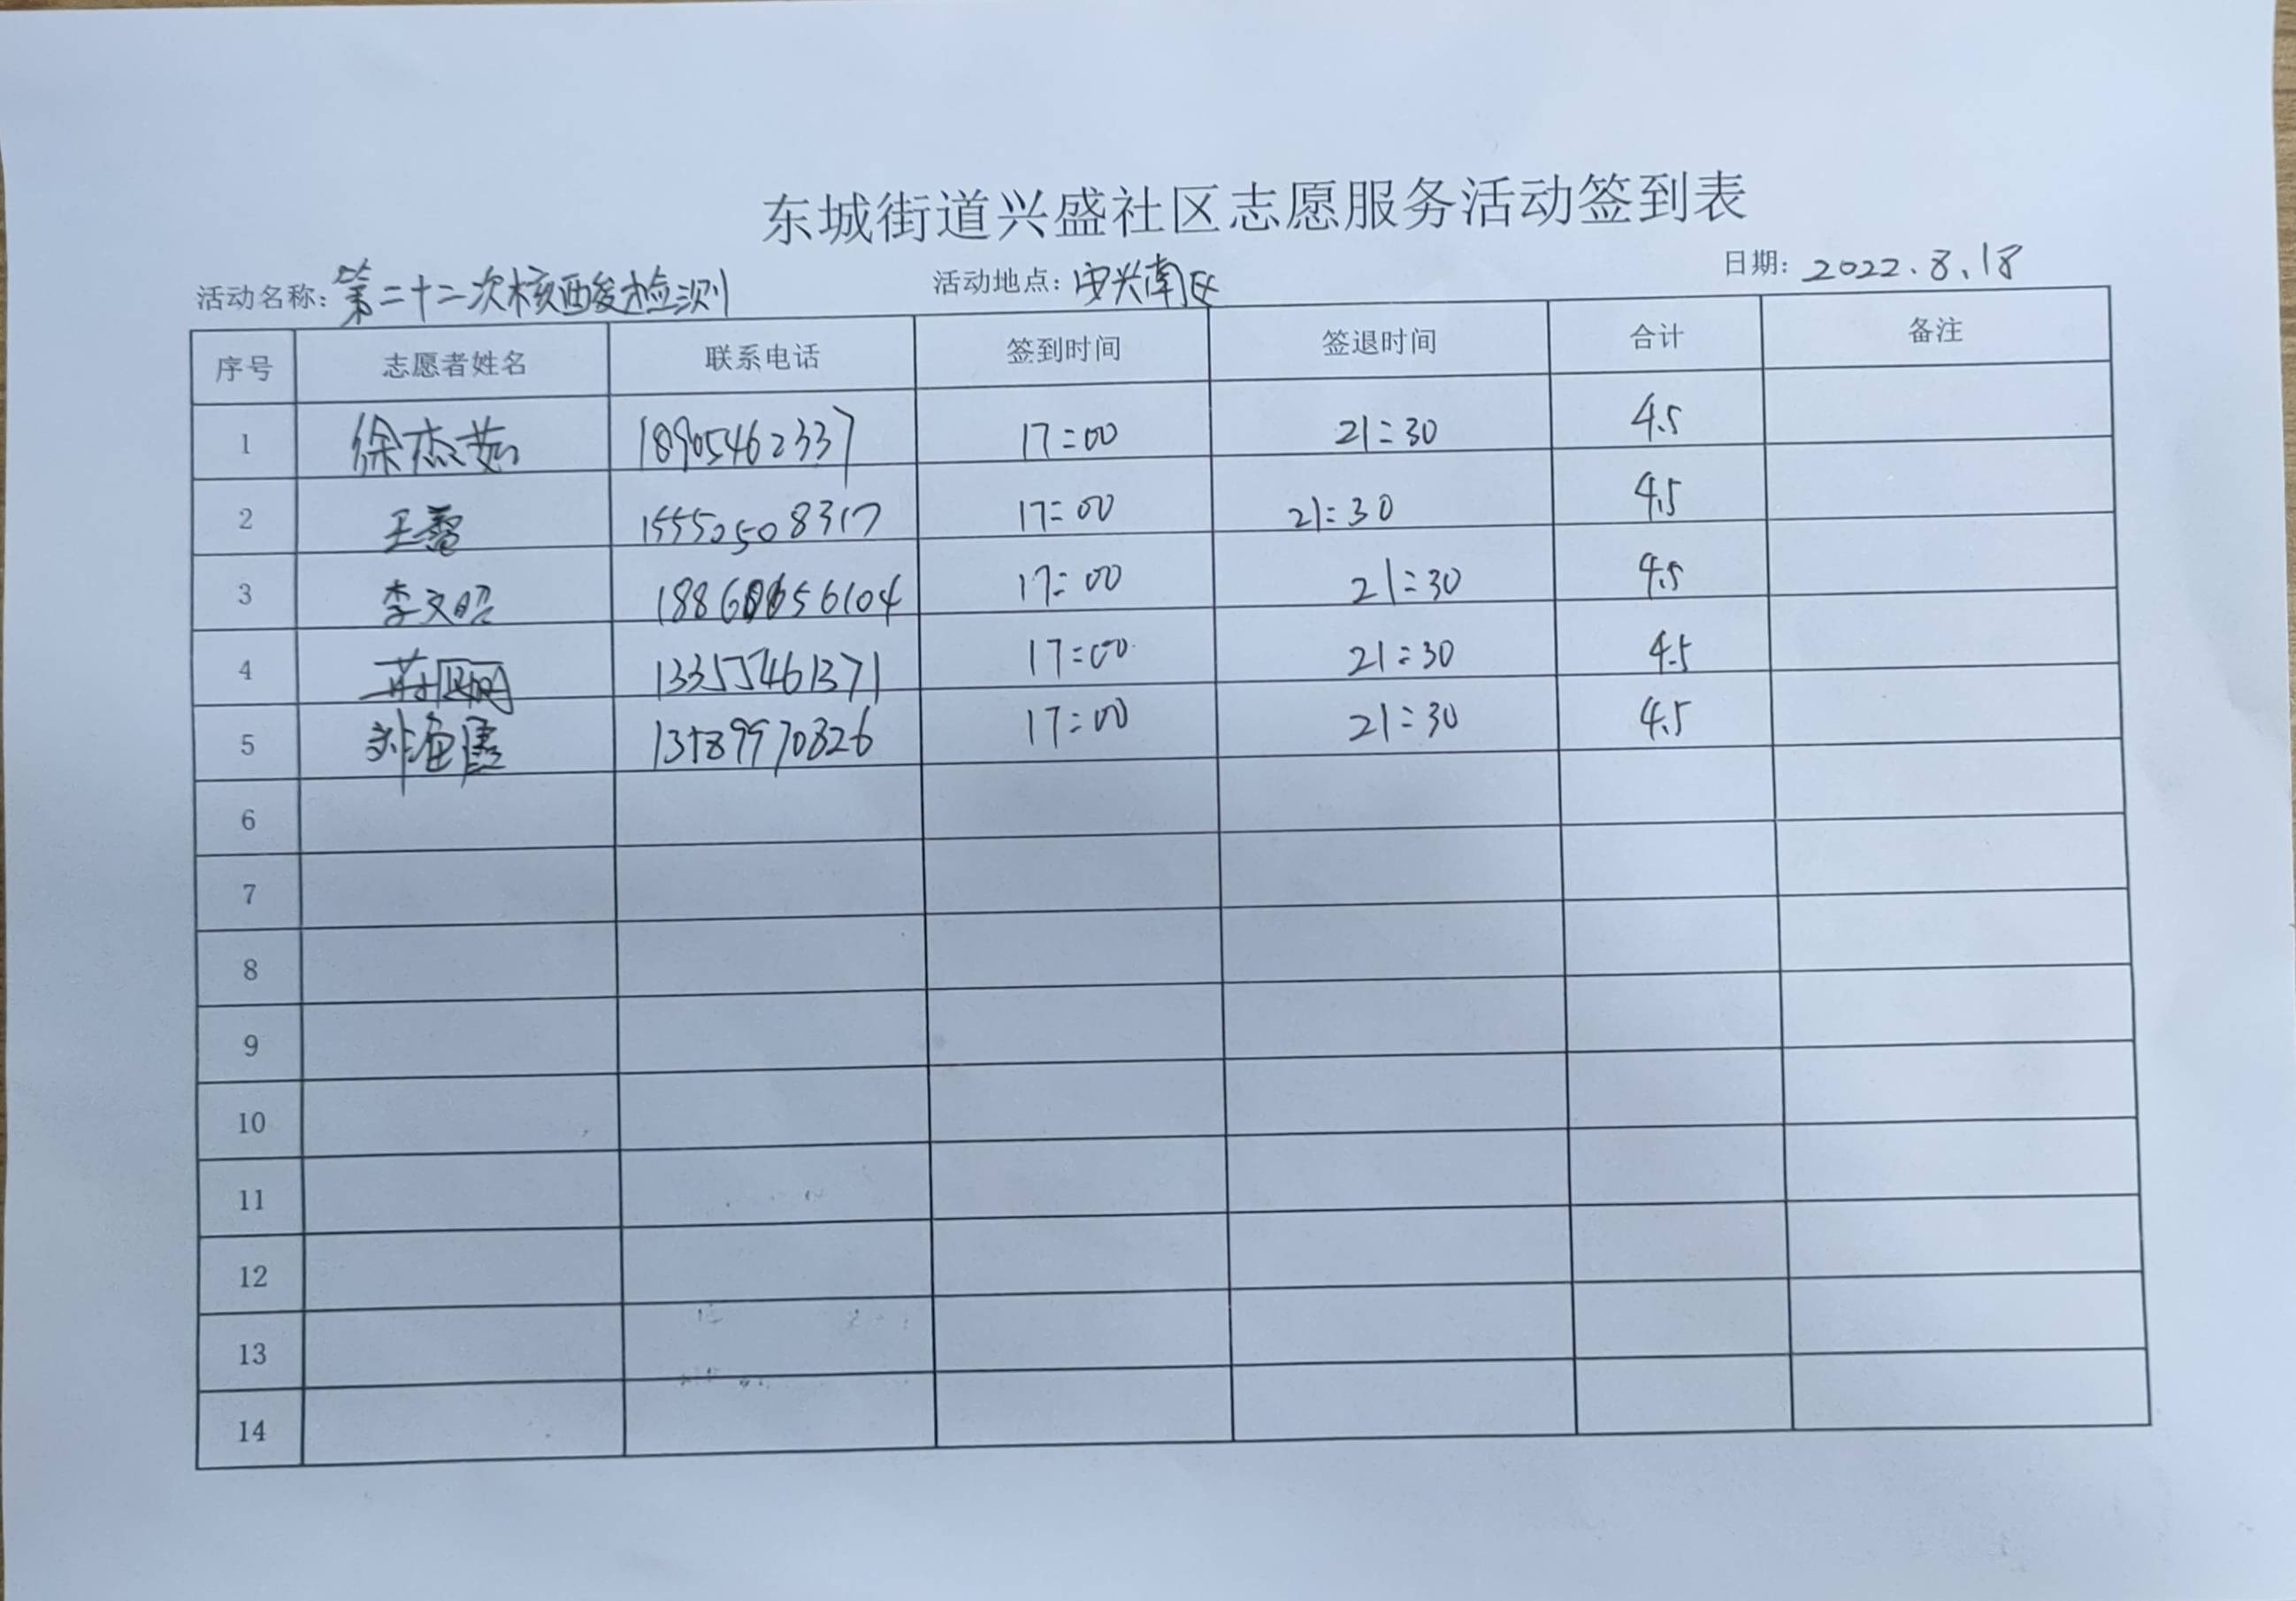 东城街道兴盛社区志愿服务活动签到表
活动名称：第二十二次核酸检测 活动地点：安兴南区 日期：2022.8.18
序号 志愿者姓名 联系电话 签到时间 签退时间 合计 备注
1 徐杰茹 18905462337 17:00 21:30 4.5
2 王馨 15552508317 17:00 21:30 4.5
3 李文昭 17:00 21:30 4.5
4 13355461371 17:00 21:30 4.5
5 刘海霞 13589970826 17:00 21:30 4.5
6
7
8
9
10
11
12
13
14